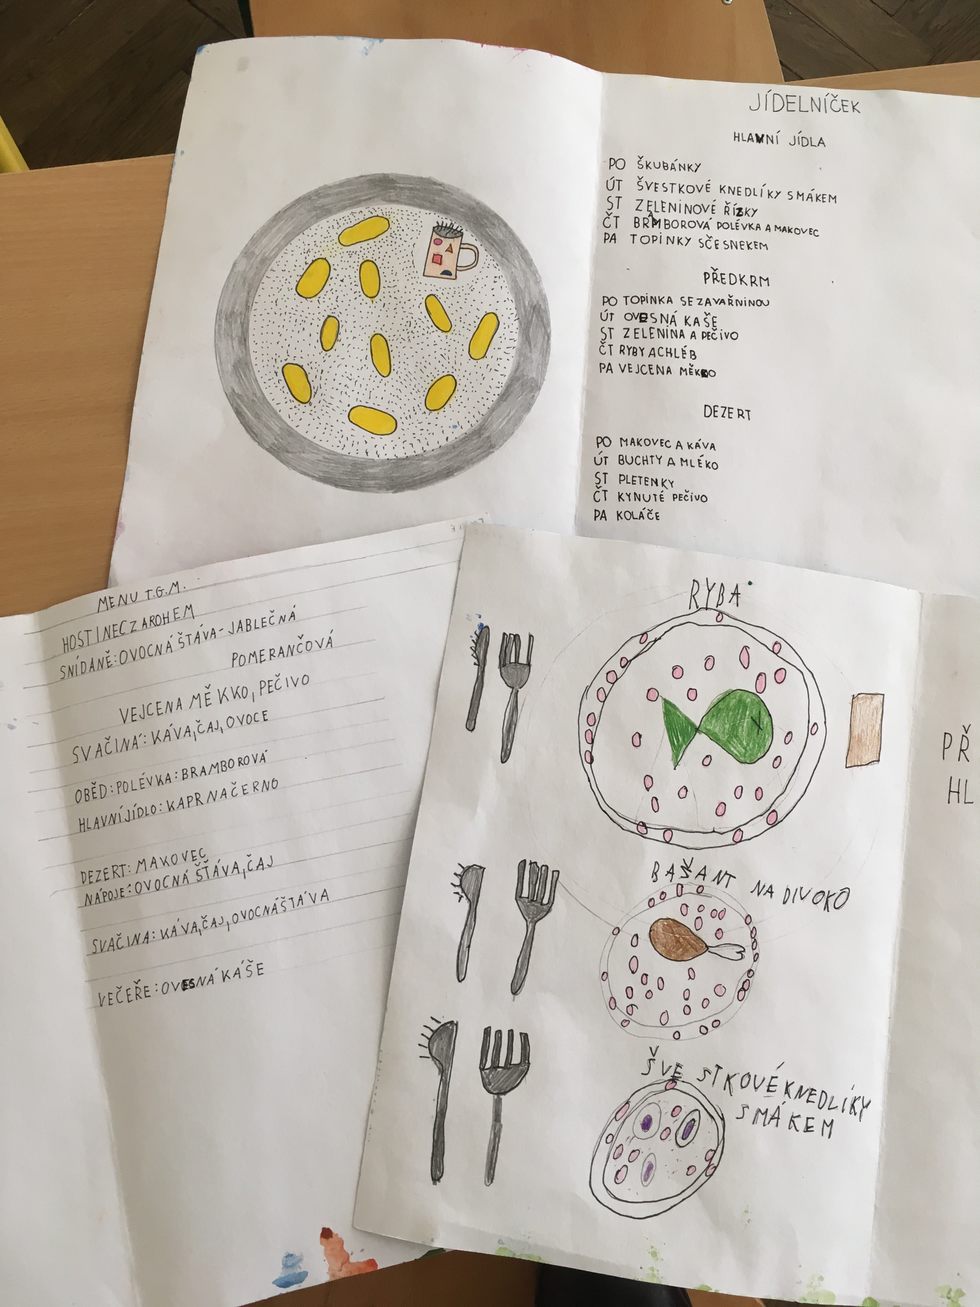 JÍDELNÍČEK
HLAVNÍ JÍDLA
PO ŠKUBÁNKY
ÚT ŠVESTKOVÉ KNEDLÍKY S MÁKEM
ST ZELENINOVÉ ŘÍZKY
ČT BRAMBOROVÁ POLÉVKA A MAKOVEC
PA TOPINKY SČESNEKEM
PŘEDKRM
PO TOPINKA SE ZAVAŘNINOU
ÚT OVESNÁ KAŠE
ST ZELENINA A PEČIVO
ČT RYBY ACHLÉB
PA VEJCENA MĚKKO
DEZERT
PO MAKOVEC A KÁVA
ÚT BUCHTY A MLÉKO
ST PLETENKY
ČT KYNUTÉ PEČIVO
PA KOLÁČE
MENU T.G.M.
HOSTINEC ZA ROHEM
SNÍDANĚ: OVOCNÁ ŠTÁVA - JABLEČNÁ
POMERANČOVÁ
VEJCENA MĚKKO, PEČIVO
SVAČINA: KÁVA, ČAJ, OVOCE
OBĚD: POLÉVKA: BRAMBOROVÁ
HLAVNÍ JÍDLO: KAPR NAČERNO
DEZERT: MAKOVEC
NÁPOJE: OVOCNÁ ŠŤÁVA, ČAJ
SVAČINA: KÁVA, ČAJ, OVOCNÁ ŠTÁVA
VEČEŘE: OVESNÁ KÁŠE
RYBA
BAŠANT NA DIVOKO
ŠVESTKOVÉ KNEDLÍKY
S MÁKEM
PŘ
HL